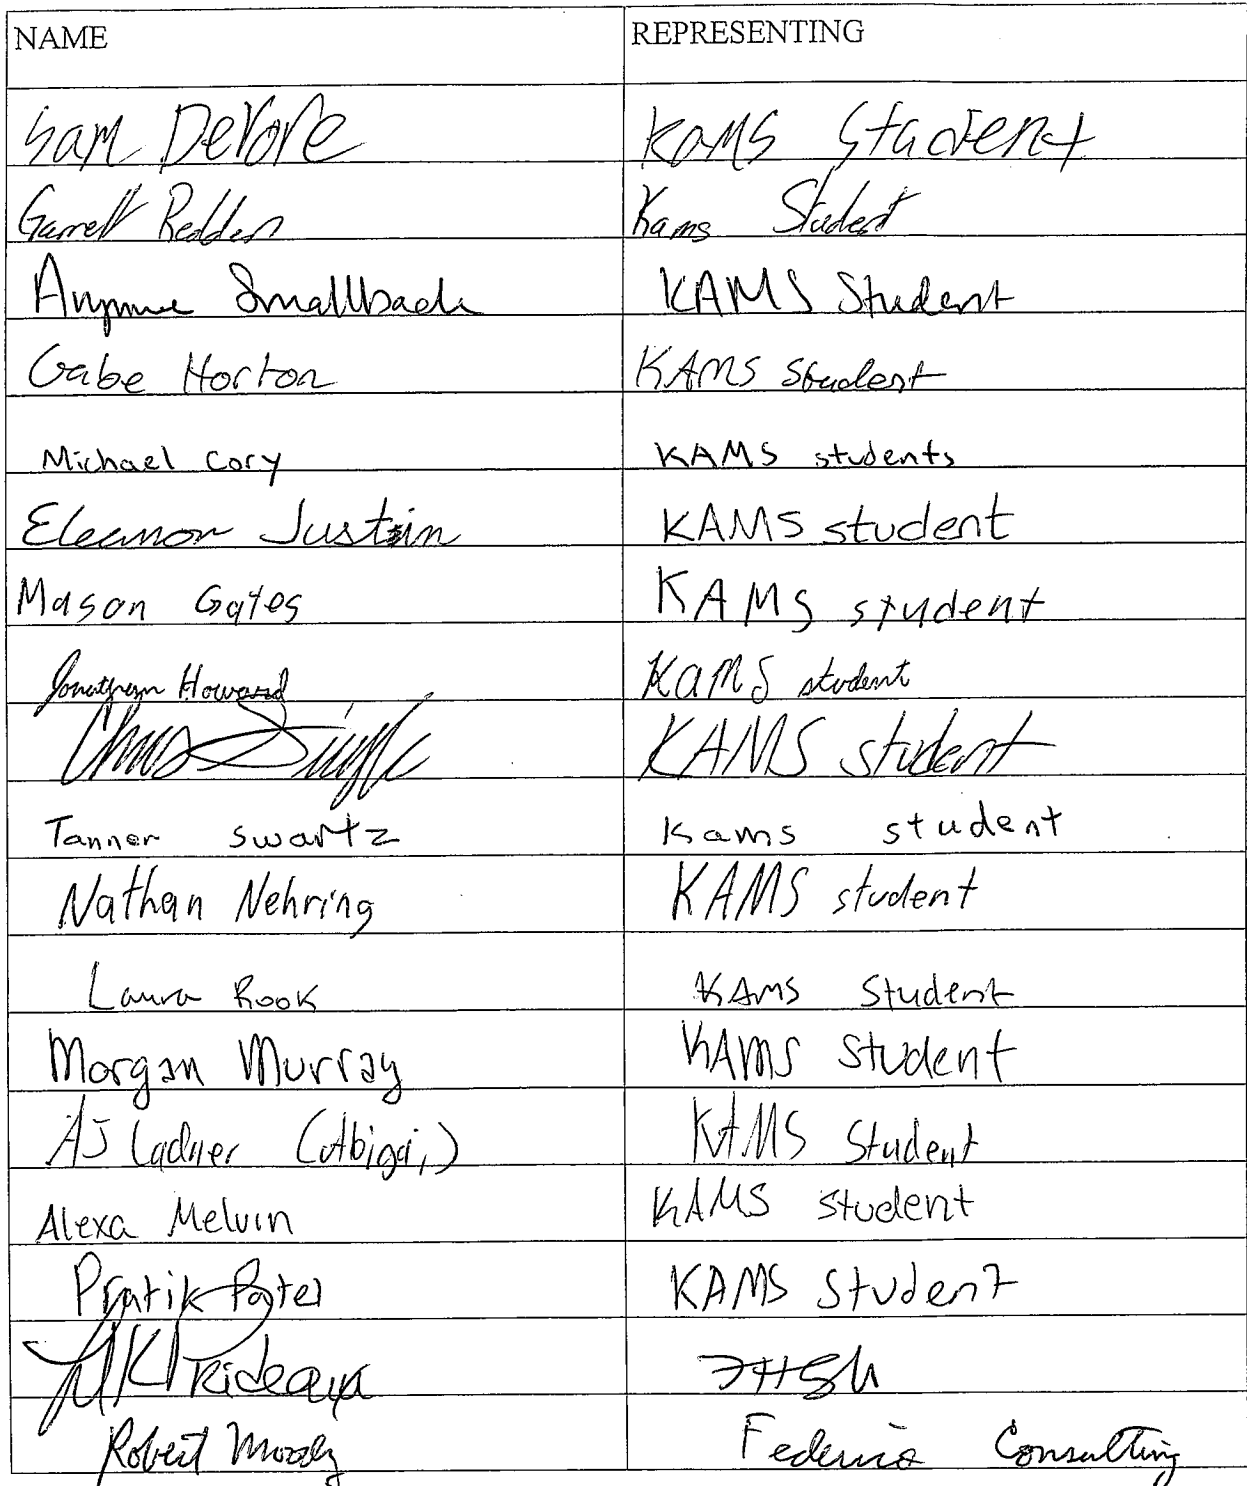 NAME REPRESENTING
Sam DeVore Kams Student
Garrett Redden Kams Student
Smallback KAMS Student
Gabe Horton KAMS Student
Michael Cory KAMS students
Eleanor Justin KAMS student
Mason Gates KAMS student
Jonathan Howard KAMS student
Chris KAMS student
Tanner Swartz Kams student
Nathan Nehring KAMS student
Laura Rook KAMS Student
Morgan Murray KAMS Student
AJ Ladner (Abigail) KAMS Student
Alexa Melvin KAMS Student
Pratik Patel KAMS Student
Robert Moody Federico Consulting